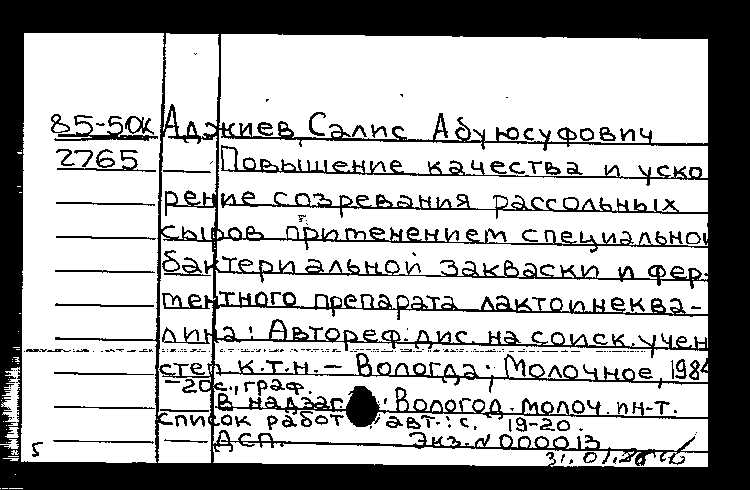 85-50к Аджиев, Салис Абуюсуфович
2765 Повышение качества и уско
рение созревания рассольных
сыров применением специальной
бактериальной закваски и фер-
ментного препарата лактоинеква-
лина: Автореф. дис. на соиск. учен
степ к.т.н. – Вологда; Молочное, 1984
– 20с., граф.
В надзаг.: Вологод. молоч. ин-т.
Список работ авт.: с. 19-20.
ДСП. Экз. N 000013
5 31.01.86